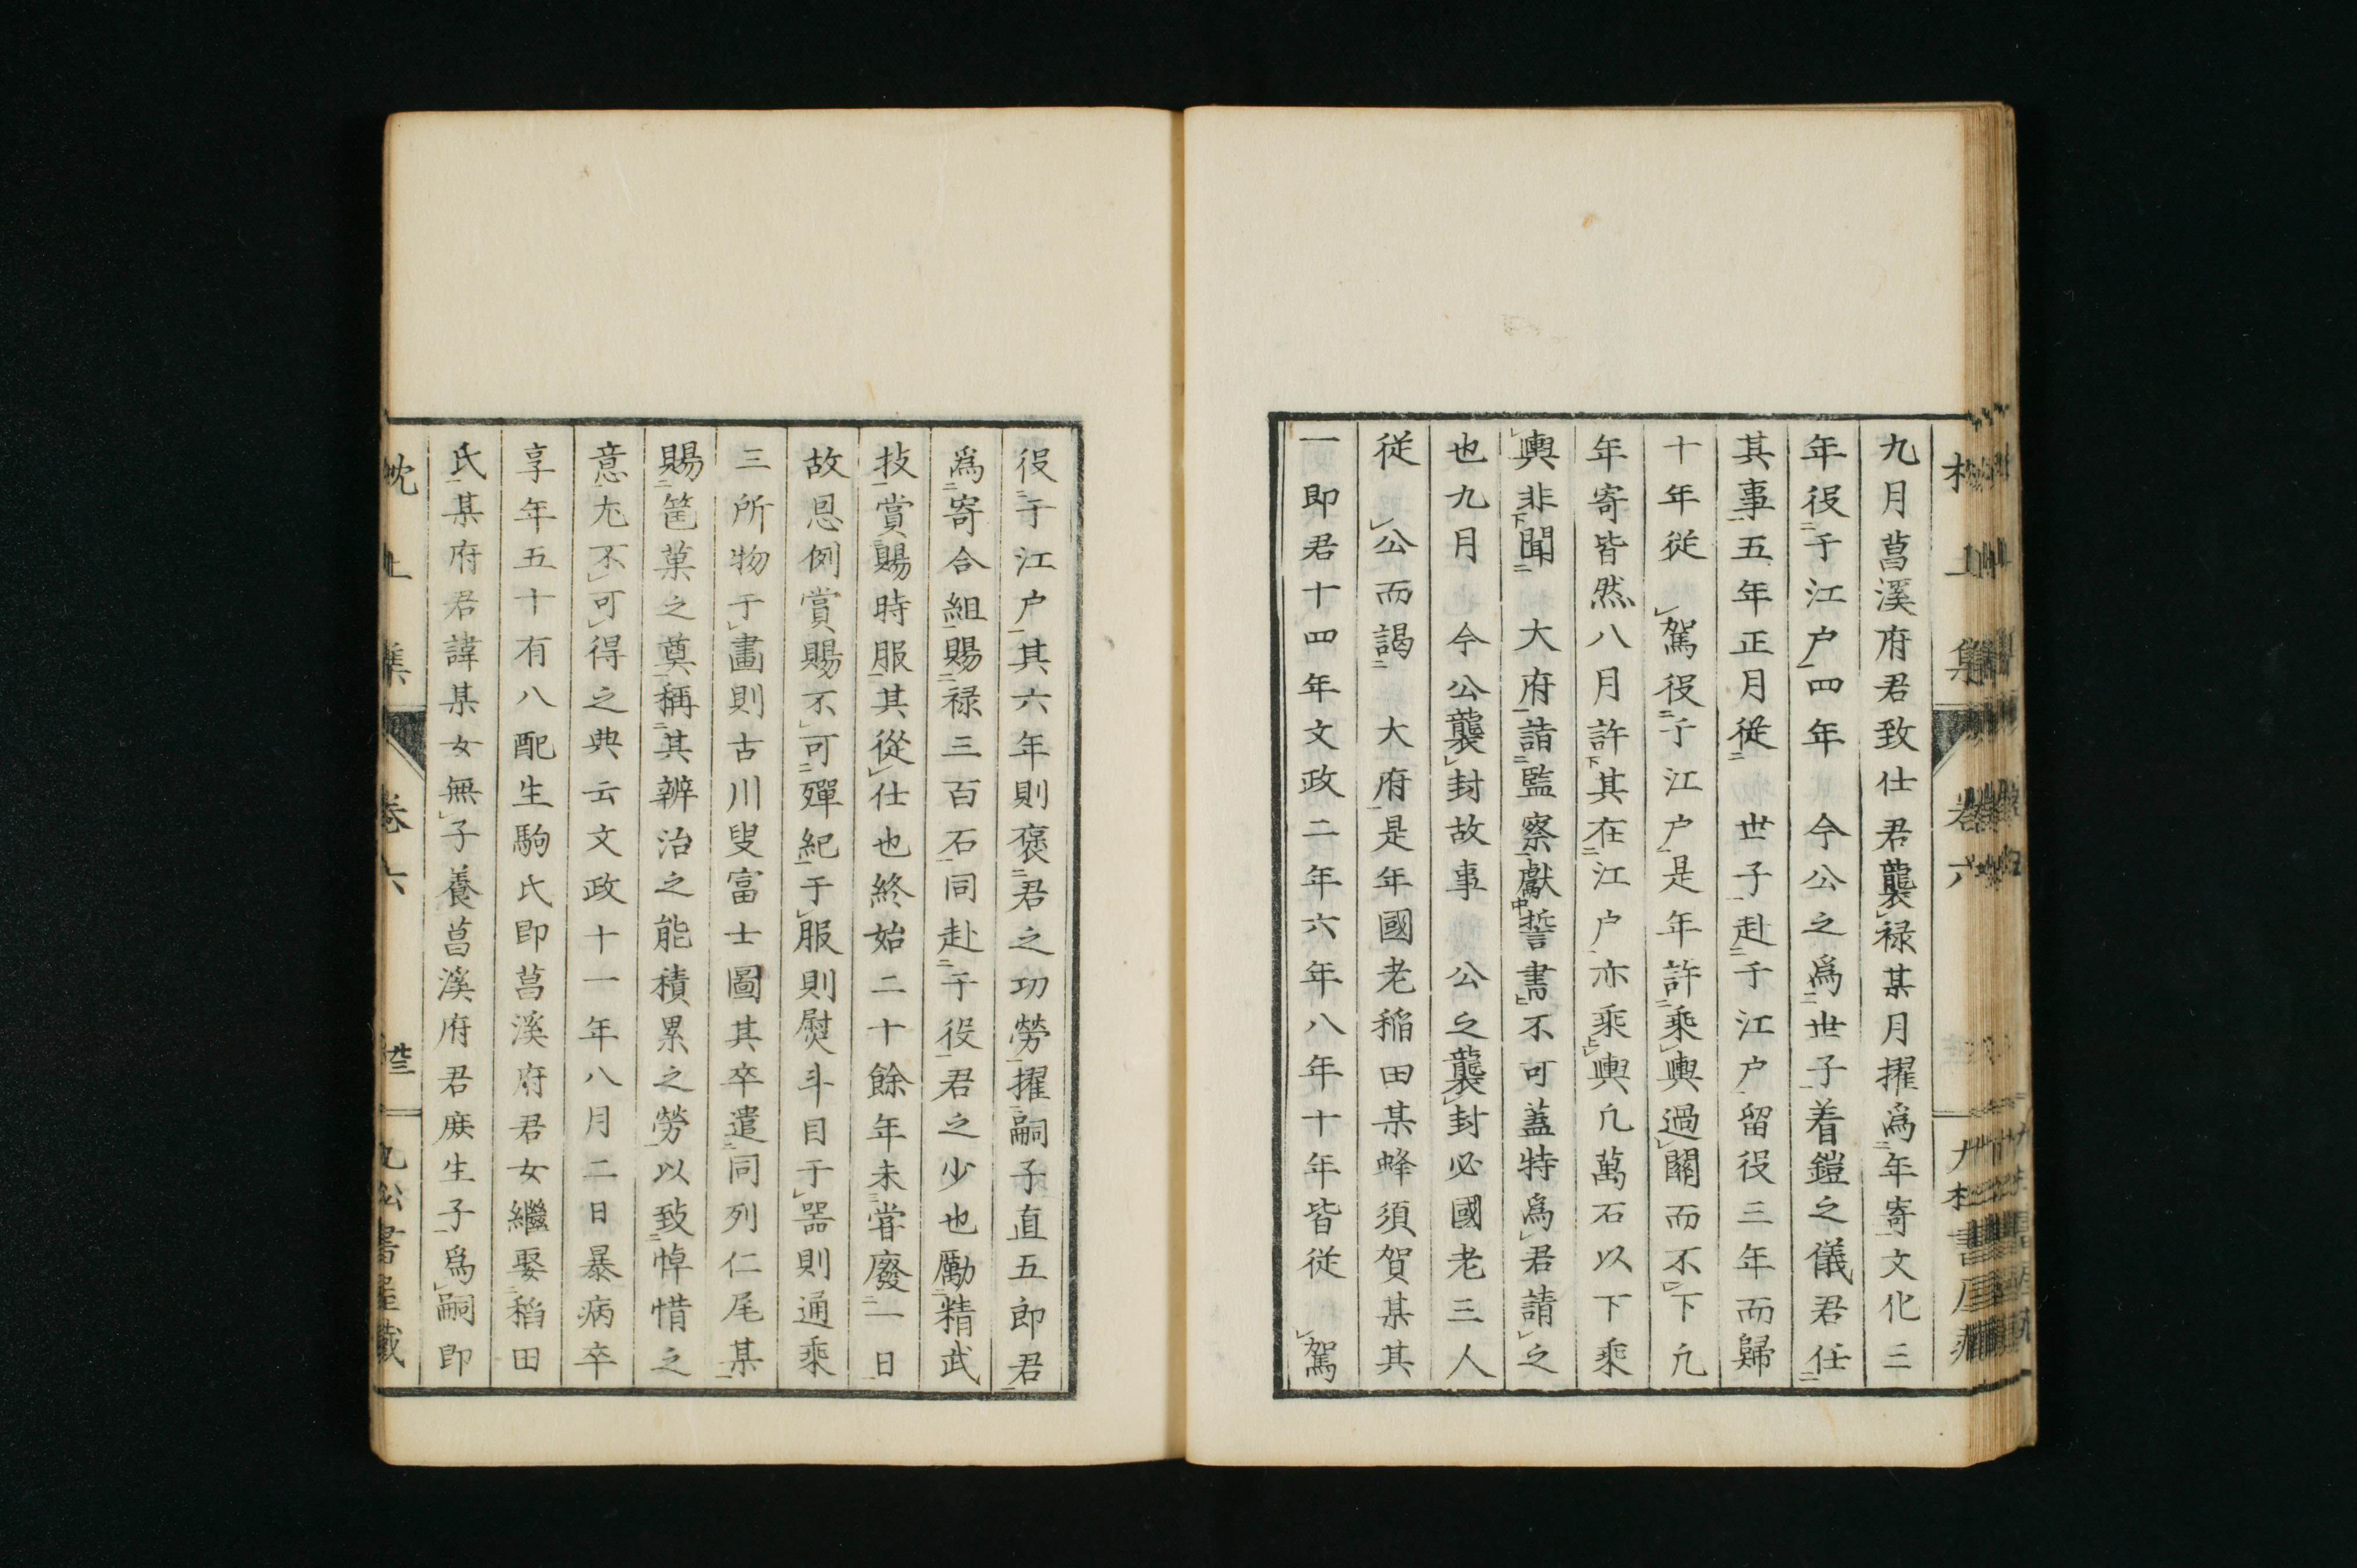 九月菖溪府君致仕君襲祿某月擢爲年寄文化三
年役于江户四年　今公之爲世子着鎧之儀君任
其事五年正月從　世子赴于江户留役三年而歸
十年從　駕役于江户是年許乘輿過關而不下凢
年寄皆然八月許其在江户亦乘輿凢萬石以下乘
輿非聞　大府詣監察獻誓書不可蓋特爲君請之
也九月　今公襲封故事　公之襲封必國老三人
從　公而謁　大府是年國老稲田某蜂須賀某其
一即君十四年文政二年六年八年十年皆從　駕
役于江户其六年則褒君之功勞擢嗣子直五郎君
爲寄合組賜禄三百石同赴于役君之少也勵精武
技賞賜時服其從仕也終始二十餘年未甞廢一日
故恩例賞賜不可殫紀于服則熨斗目于器則通乘
三所物于畫則古川叟富士圖其卒遣同列仁尾某
賜筐菓之奠稱其辨治之能積累之勞以致悼惜之
意尢不可得之典云文政十一年八月二日暴病卒
享年五十有八配生駒氏即菖溪府君女繼娶稻田
氏某府君諱某女無子養菖溪府君庶生子爲嗣即
枕上集　卷六